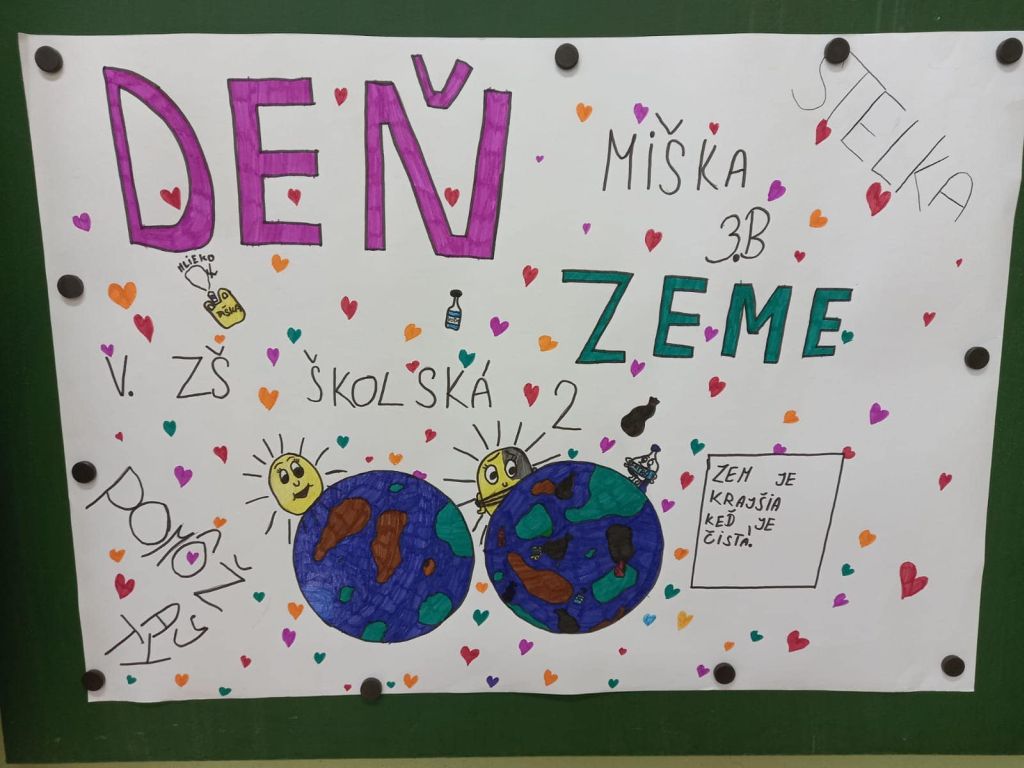 DEŇ
MIŠKA
3.B
STELKA
ZEME
MLIEKO
V. ZŠ ŠKOLSKÁ 2
ZEM JE
KRAJŠIA
KEĎ JE
ČISTÁ!